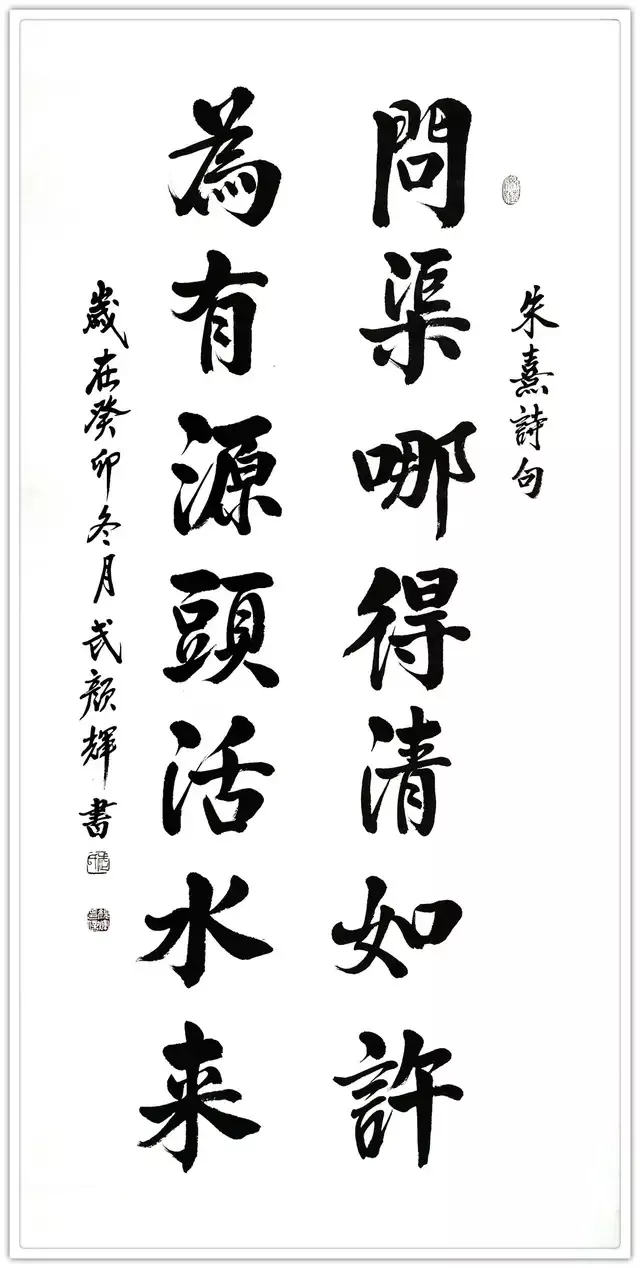 朱熹詩句
問渠哪得清如許
為有源頭活水来
歲在癸卯冬月武顏輝書